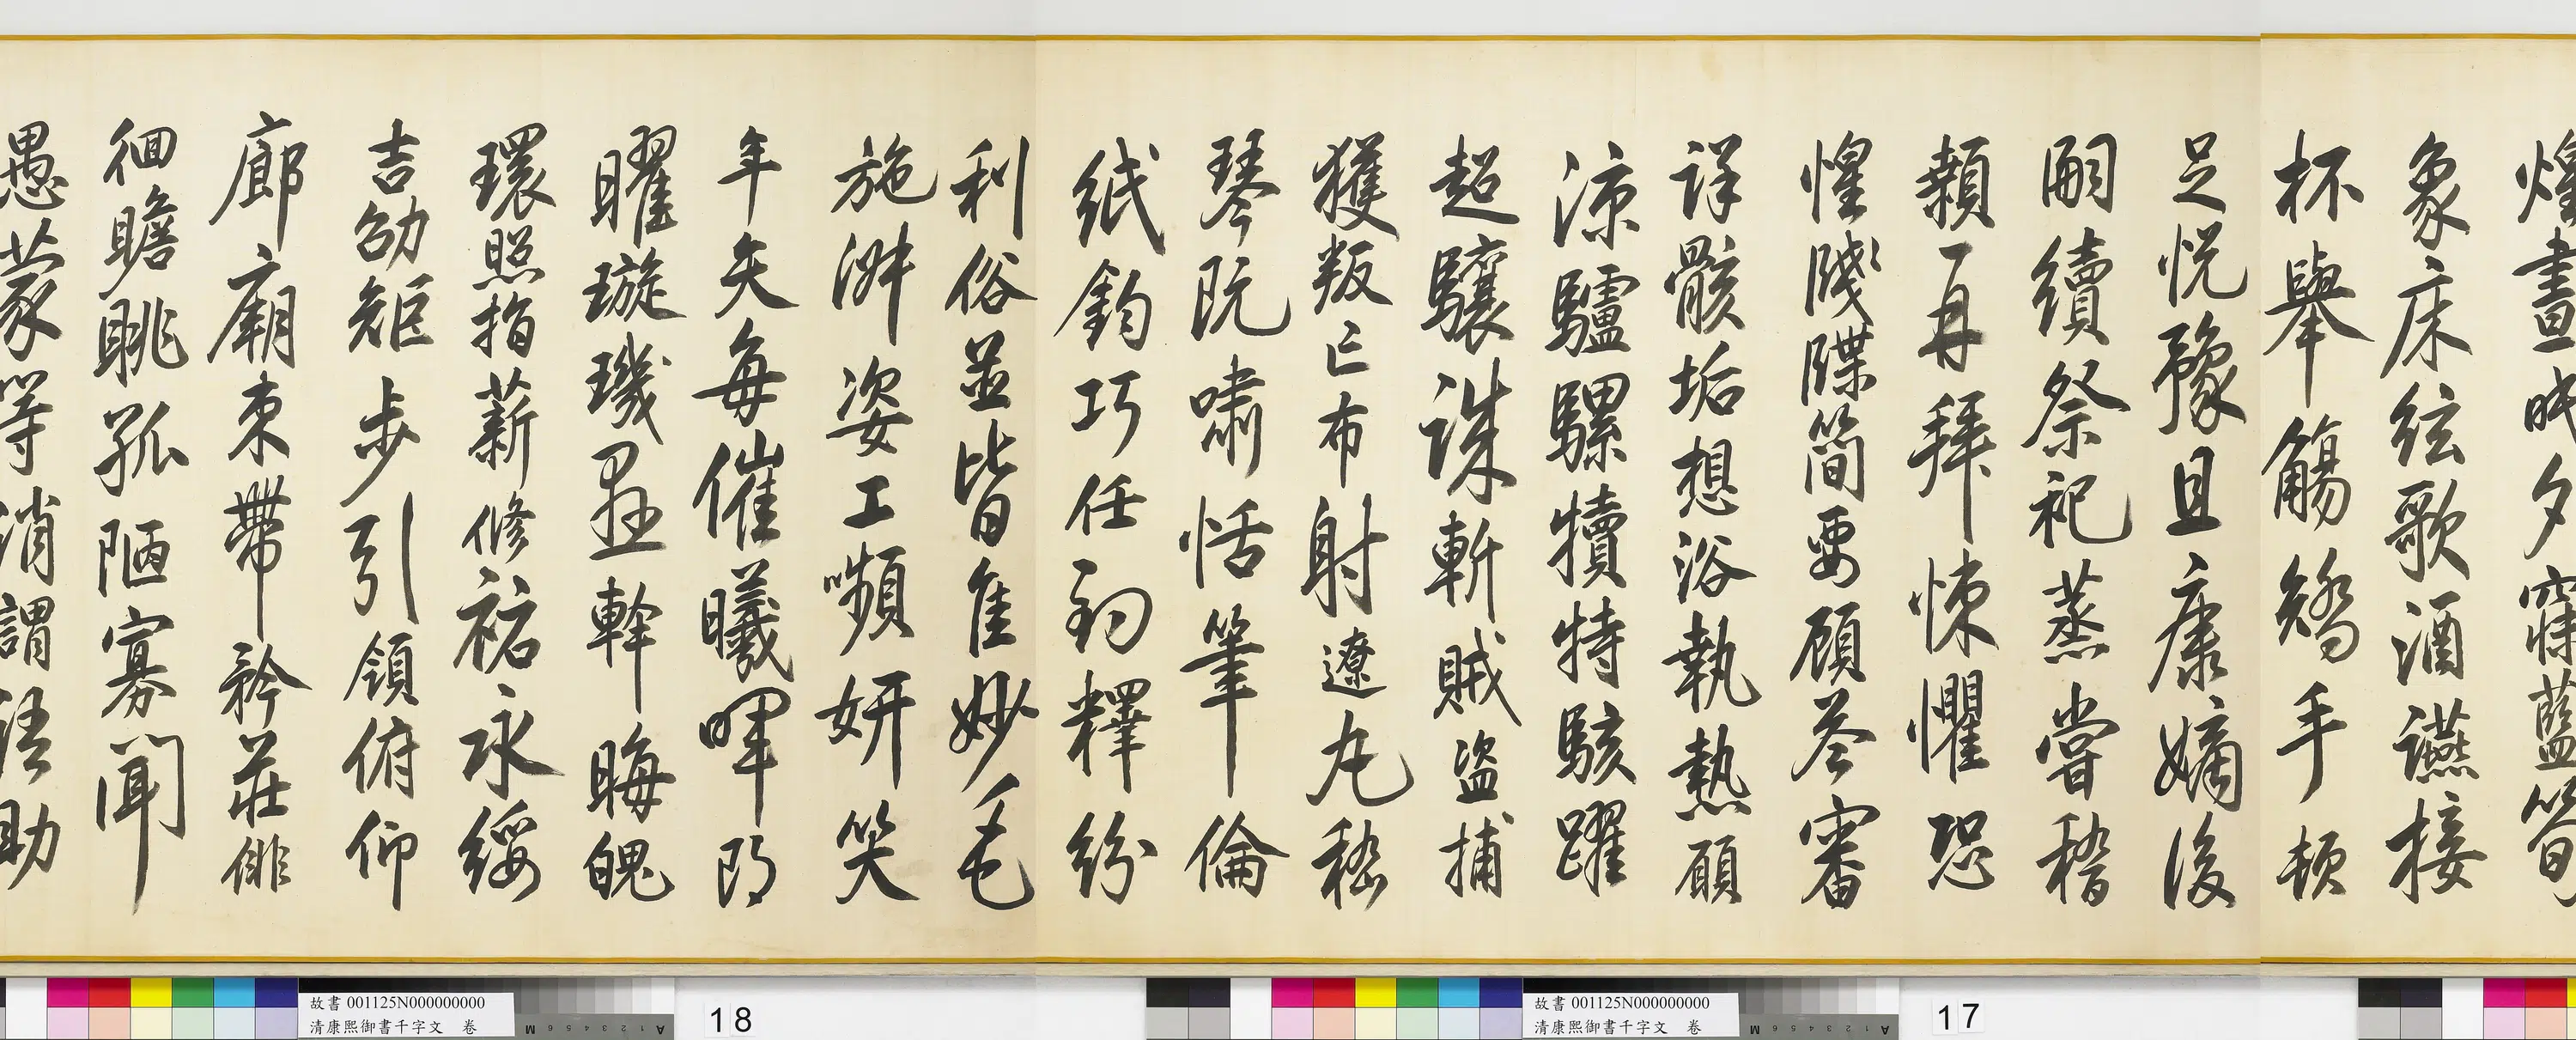 煌晝眠夕寐藍筍
象床絃歌酒讌接
杯舉觴矯手頓
足悅豫且康嫡後
嗣續祭祀蒸嘗稽
顙再拜悚懼恐
惶牋牒簡要顧答審
詳骸垢想浴執熱願
涼驢騾犢特駭躍
超驤誅斬賊盜捕
獲叛亡布射遼丸嵇
琴阮嘯恬筆倫
紙鈞巧任釣釋紛
利俗並皆佳妙毛
施淑姿工嚬妍笑
年矢每催曦暉朗
曜璇璣懸斡晦魄
環照指薪修祜永綏
吉劭矩步引領俯仰
廊廟束帶矜莊俳
徊瞻眺孤陋寡聞
愚蒙等誚謂語助
故書 001125N000000000
清康熙御書千字文 卷
17
故書 001125N000000000
清康熙御書千字文 卷
18